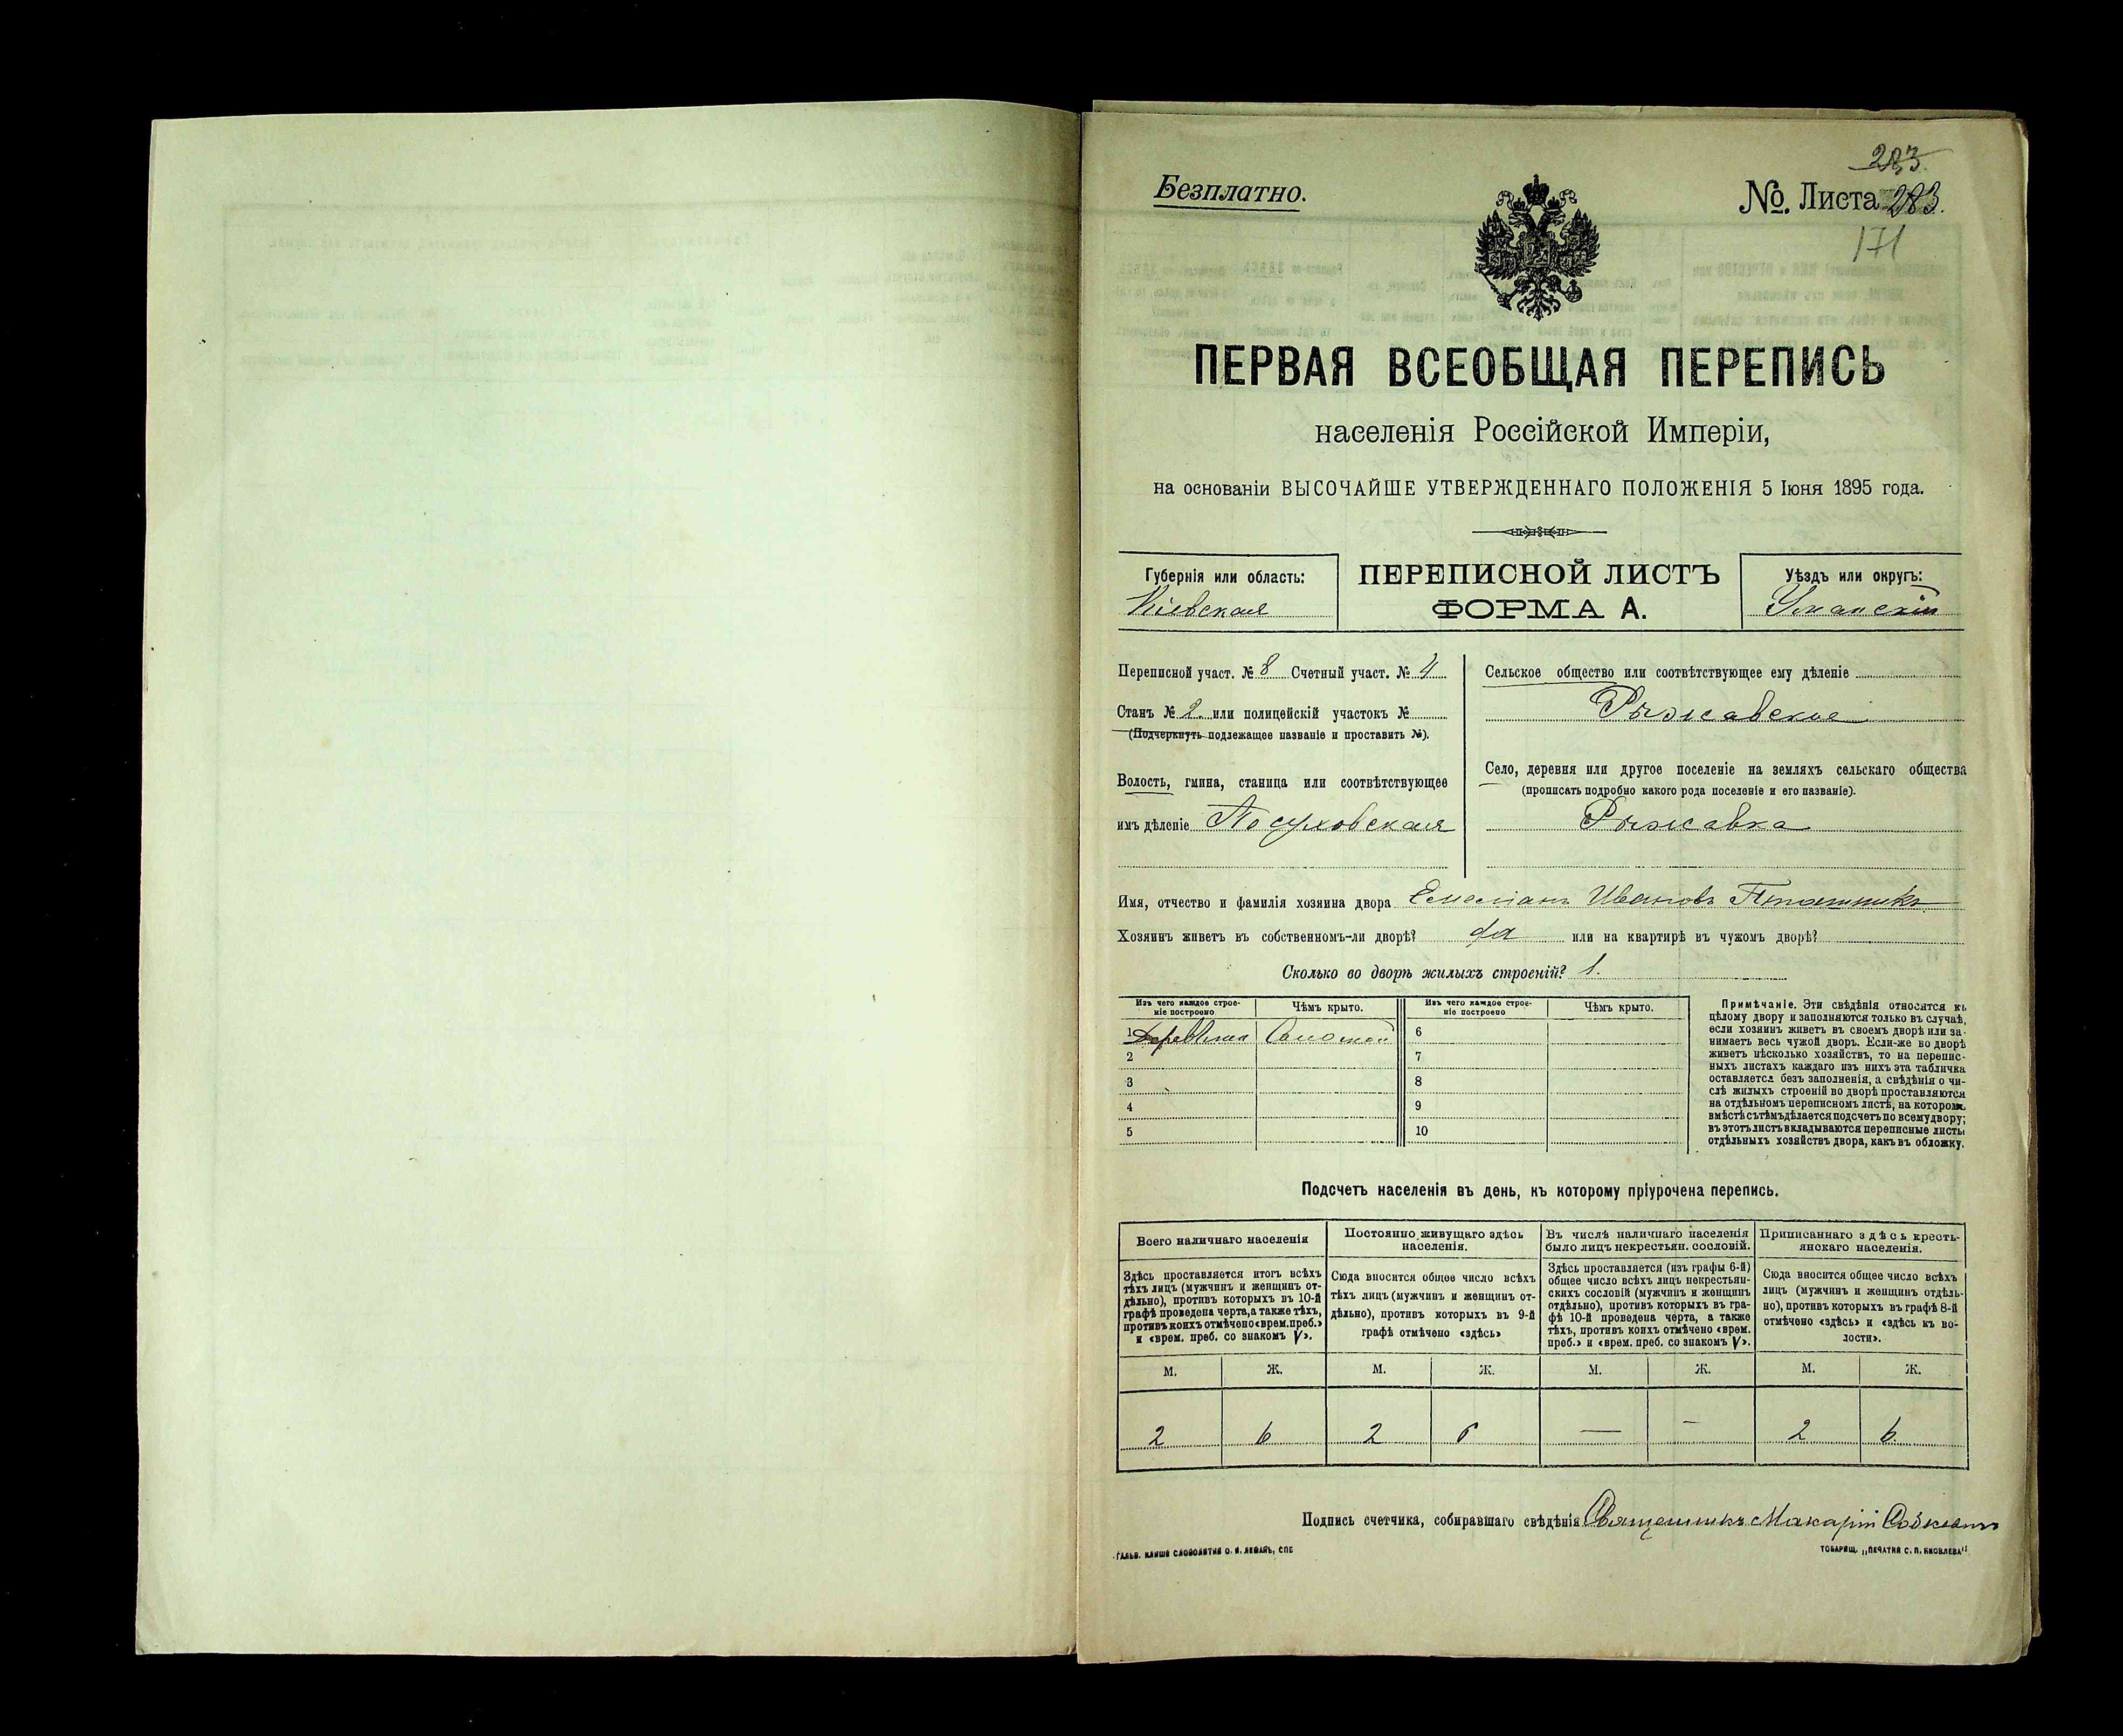 283.
Безплатно.
№. Листа 283.
171
ПЕРВАЯ ВСЕОБЩАЯ ПЕРЕПИСЬ
населенія Россійской Имперіи,
на основаніи ВЫСОЧАЙШЕ УТВЕРЖДЕННАГО ПОЛОЖЕНІЯ 5 Іюня 1895 года.
Губернія или область:
Кіевская
ПЕРЕПИСНОЙ ЛИСТЪ
ФОРМА А.
Уѣздъ или округъ:
Уманскій
Переписной участ. № 8 Счетный участ. № 4
Станъ № 2. или полицейскій участокъ №
(Подчеркнуть подлежащее названіе и проставить №).
Волость, гмина, станица или соотвѣтствующее
имъ дѣленіе Посуховская
Сельское общество или соотвѣтствующее ему дѣленіе
Рыжавское
Село, деревня или другое поселеніе на земляхъ сельскаго общества
(прописать подробно какого рода поселеніе и его названіе).
Рыжавка
Имя, отчество и фамилія хозяина двора Емеліанъ Ивановъ Пташникъ
Хозяинъ живетъ въ собственномъ-ли дворѣ? да или на квартирѣ въ чужомъ дворѣ?
Сколько во дворѣ жилыхъ строеній? 1.
Изъ чего каждое строе-
ніе построено
Чѣмъ крыто.
Изъ чего каждое строе-
ніе построено
Чѣмъ крыто.
1 Соломой 6
2 7
3 8
4 9
5 10
Примѣчаніе. Эти свѣдѣнія относятся къ
цѣлому двору и заполняются только въ случаѣ,
если хозяинъ живетъ въ своемъ дворѣ или за-
нимаетъ весь чужой дворъ. Если-же во дворѣ
живетъ нѣсколько хозяйствъ, то на перепис-
ныхъ листахъ каждаго изъ нихъ эта табличка
оставляется безъ заполненія, а свѣдѣнія о чи-
слѣ жилыхъ строеній во дворѣ проставляются
на отдѣльномъ переписномъ листѣ, на которомъ
вмѣстѣ съ тѣмъ дѣлается подсчетъ по всему двору;
въ этотъ листъ вкладываются переписные листы
отдѣльныхъ хозяйствъ двора, какъ въ обложку.
Подсчетъ населенія въ день, къ которому пріурочена перепись.
Всего наличнаго населенія
Здѣсь проставляется итогъ всѣхъ
тѣхъ лицъ (мужчинъ и женщинъ от-
дѣльно), противъ которыхъ въ 10-й
графѣ проведена черта, а также тѣхъ,
противъ коихъ отмѣчено «врем. преб.»
и «врем. преб. со знакомъ V».
Постоянно живущаго здѣсь
населенія.
Сюда вносится общее число всѣхъ
тѣхъ лицъ (мужчинъ и женщинъ от-
дѣльно), противъ которыхъ въ 9-й
графѣ отмѣчено «здѣсь»
Въ числѣ наличнаго населенія
было лицъ некрестьян. сословій.
Здѣсь проставляется (изъ графы 6-й)
общее число всѣхъ лицъ некрестьян-
скихъ сословій (мужчинъ и женщинъ
отдѣльно), противъ которыхъ въ гра-
фѣ 10-й проведена черта, а также
тѣхъ, противъ коихъ отмѣчено «врем.
преб.» и «врем. преб. со знакомъ V».
Приписаннаго здѣсь кресть-
янскаго населенія.
Сюда вносится общее число всѣхъ
лицъ (мужчинъ и женщинъ отдѣль-
но), противъ которыхъ въ графѣ 8-й
отмѣчено «здѣсь» и «здѣсь къ во-
лости».
М. Ж. М. Ж. М. Ж. М. Ж.
2 6 2 6 — - 2 6
Подпись счетчика, собиравшаго свѣдѣнія Священникъ Макарій
ГАЛЬВ. КЛИШЕ СЛОВОЛИТНИ О. И. ЛЕМАНЪ, СПБ
ТОВАРИЩ. „ПЕЧАТНЯ С. П. ЯКОВЛЕВА“